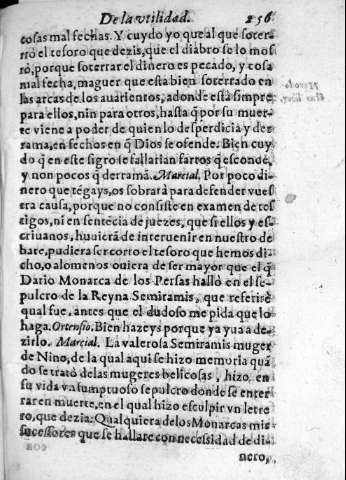 De la vtilidad. 256
cosas mal fechas. Y cuydo yo que al que soter
rró el tesoro que dezis, que el diabro se lo mos
tró, porque soterrar el dinero es pecado, y cosa
mal fecha, maguer que esta bien soterrado en
las arcas de los auarientos, adonde està simpre
para ellos, nin para otros, hasta q̃ por su muer
te viene a poder de quien lo desperdicia y der
rama, en fechos en q̃ Dios se ofende. Bien cuy
do q̃ en este sigro se fallarian fartos q̃ esconde,
y non pocos q̃ derramã. Marcial. Por poco di
nero que tẽgays, os sobrarà para defender vues
tra causa, porque no consiste en examen de tes
tigos, ni en sentẽcia de juezes, que si ellos y es
criuanos, huuierã de interuenir en nuestro de
bate, pudiera ser corto el tesoro que hemos di
cho, o alomenos ouiera de ser mayor que el q̃
Dario Monarca de los Persas hallò en el se
pulcro de la Reyna Semiramis, que referirè
qual fue, antes que el dudoso me pida que lo
haga. Ortensio. Bien hazeys porque ya yua a de
zirlo. Marcial. La valerosa Semiramis muger
de Nino, de la qual aqui se hizo memoria quã
do se tratò de las mugeres belicosas, hizo en
su vida vn sumptuoso sepulcro donde se enter
rar en muerte, en el qual hizo esculpir vn letre
ro, que dezia: Qualquiera de los Monarcas mis
sucessores que se hallare con necessidad de di-
nero,